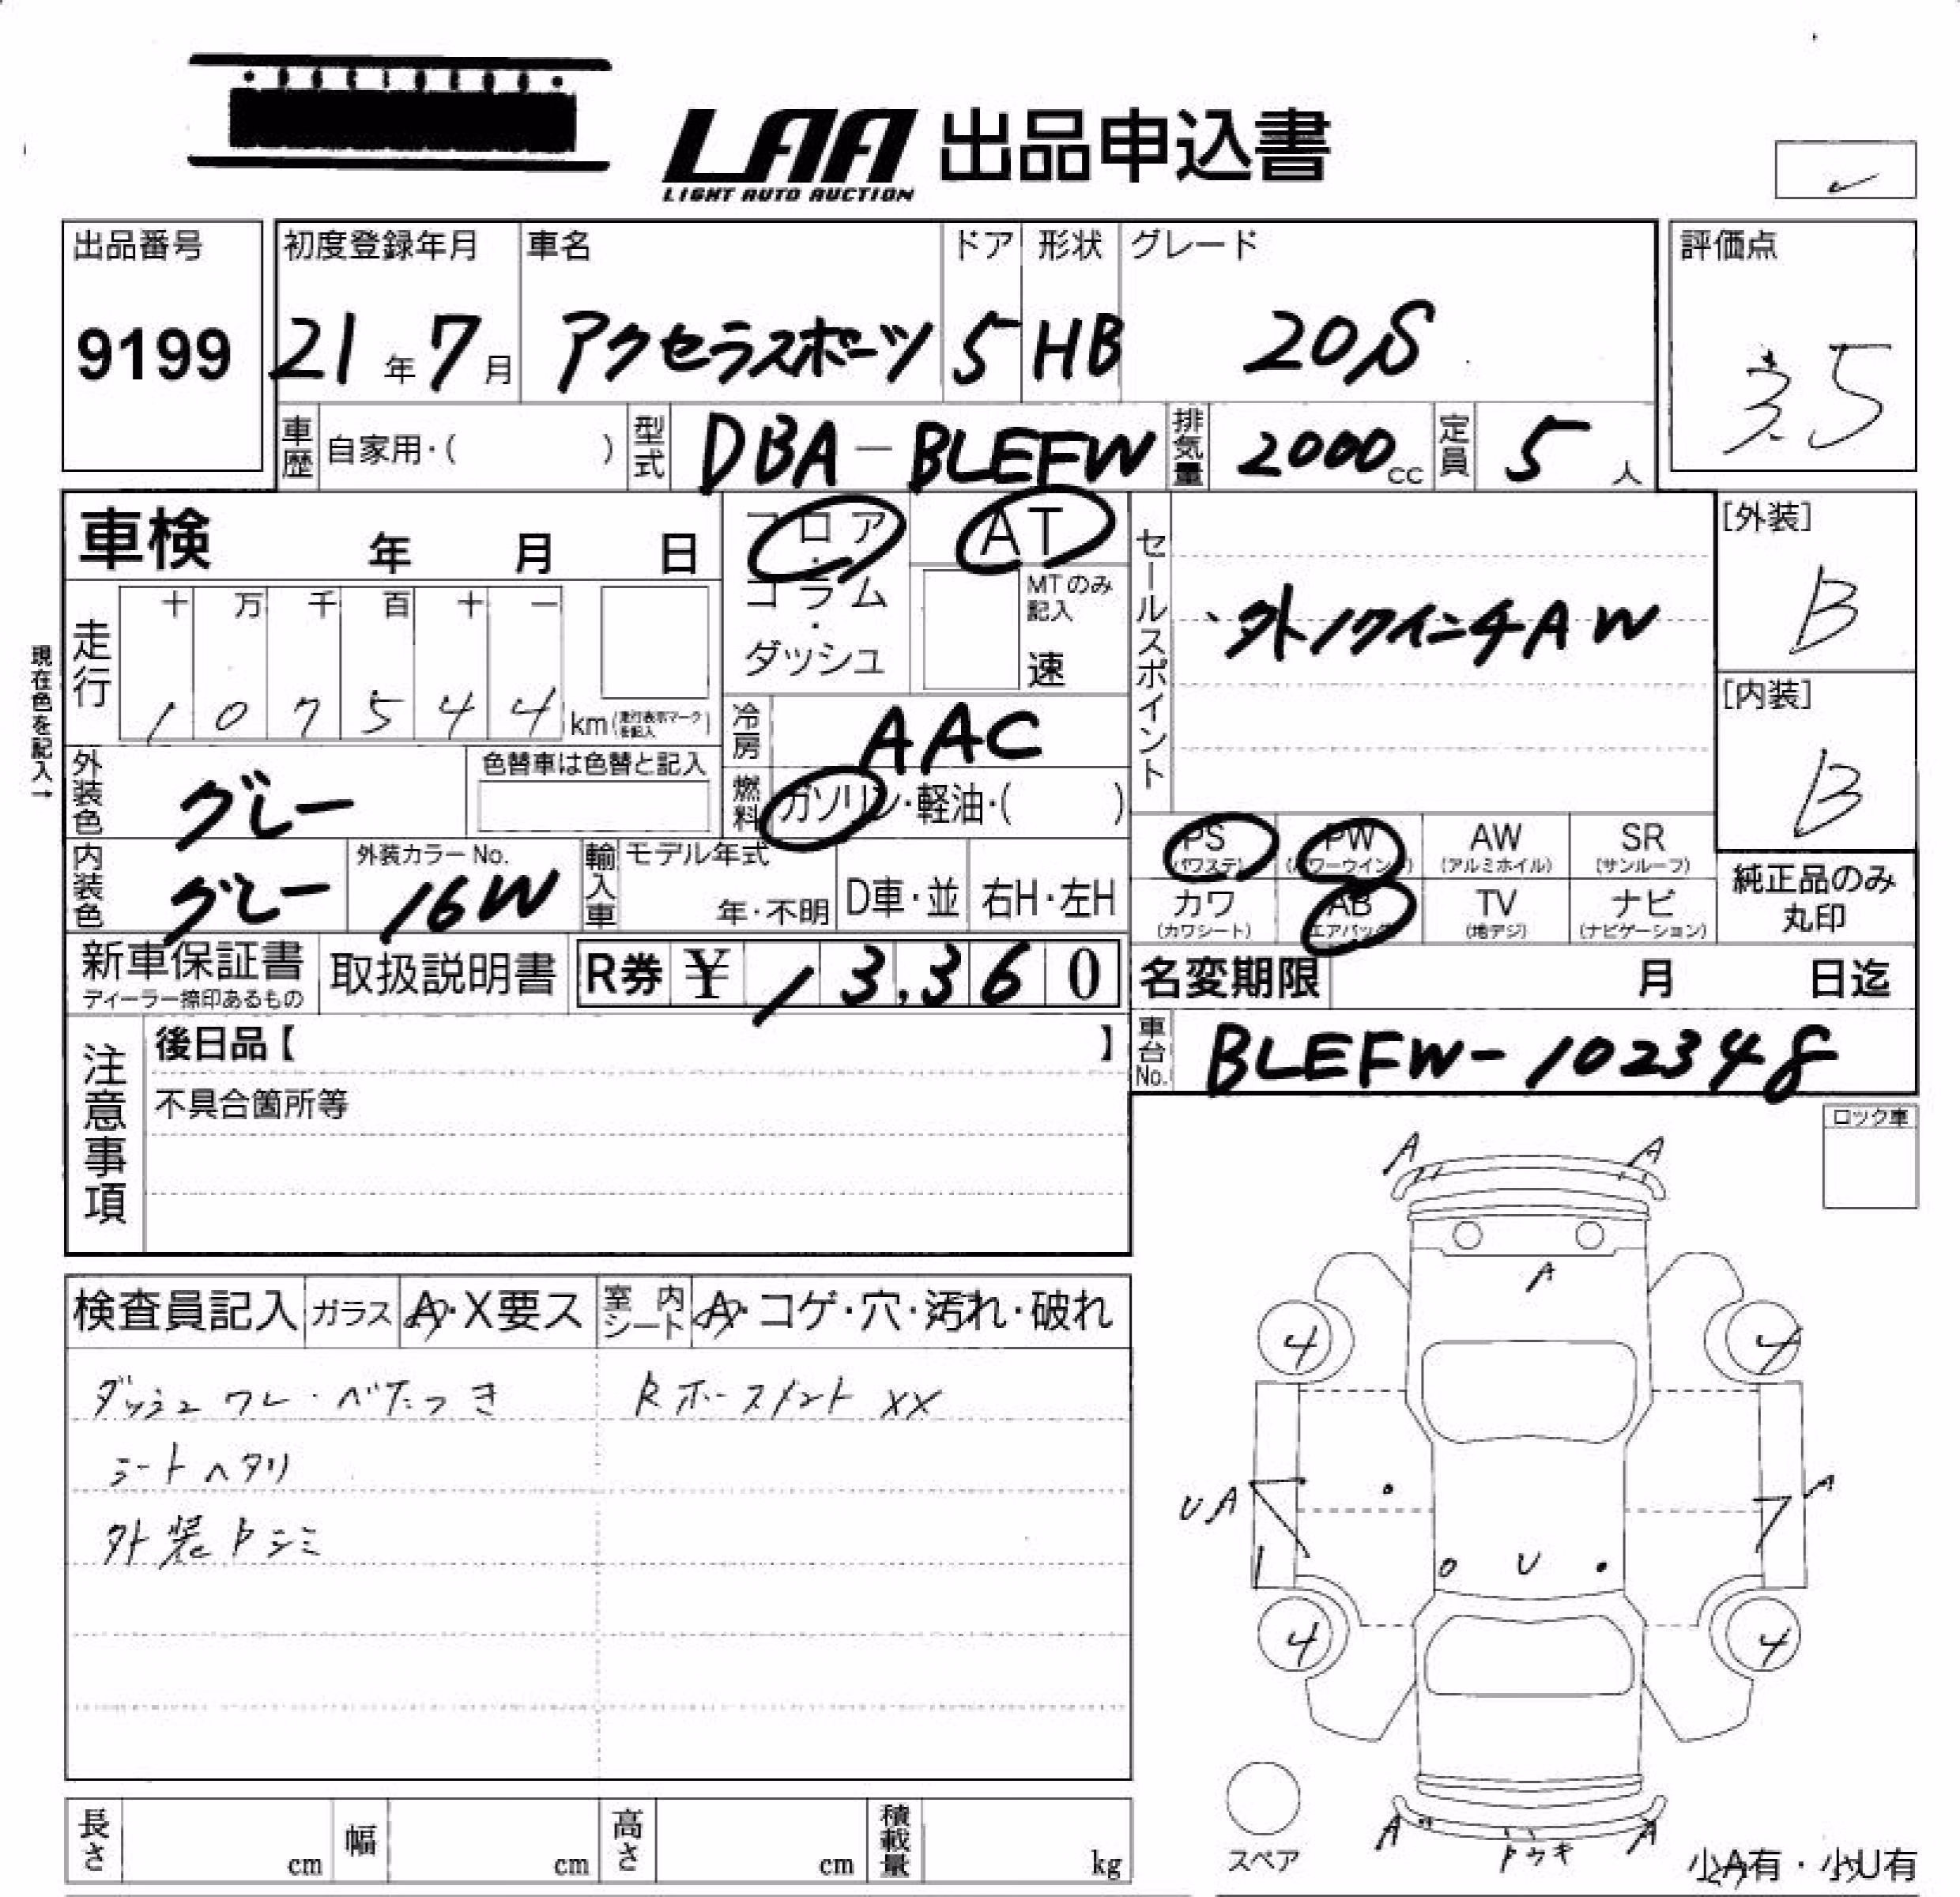 LAA 出品申込書
LIGHT AUTO AUCTION
出品番号 初度登録年月 車名 ドア 形状 グレード 評価点
9199 21年 7月 アクセラスポーツ 5 HB 20S 3.5
車歴 自家用・( ) 型式 DBA-BLEFW 排気量 2000cc 定員 5人
車検 年 月 日 フロア・コラム・ダッシュ AT セールスポイント [外装]
MTのみ記入 速
・外17インチAW B
現在色を記入→
走行 十 万 千 百 十 一
1 0 7 5 4 4 km (走行表示マークを記入)
[内装]
冷房 AAC
B
外装色 グレー 色替車は色替と記入 燃料 ガソリン・軽油・( )
PS (パワステ) PW (パワーウインド) AW (アルミホイル) SR (サンルーフ)
内装色 グレー 外装カラーNo. 16W 輸入車 モデル年式 年・不明 D車・並 右H・左H
カワ (カワシート) AB (エアバッグ) TV (地デジ) ナビ (ナビゲーション)
純正品のみ
丸印
新車保証書 取扱説明書 R券 ¥ 13,360 名変期限 月 日迄
ディーラー捺印あるもの
車台No. BLEFW-102348
注意事項 後日品【 】
不具合箇所等
ロック車
A A
A
検査員記入 ガラス A・X要ス 室内シート A・コゲ・穴・汚れ・破れ
4 4
ダッシュワレ・ベタつき Rホースメント XX
シートヘタリ
UA A
外装トシミ
U
4 4
A トウキ A
スペア
長さ cm 幅 cm 高さ cm 積載量 kg
小A有・小U有